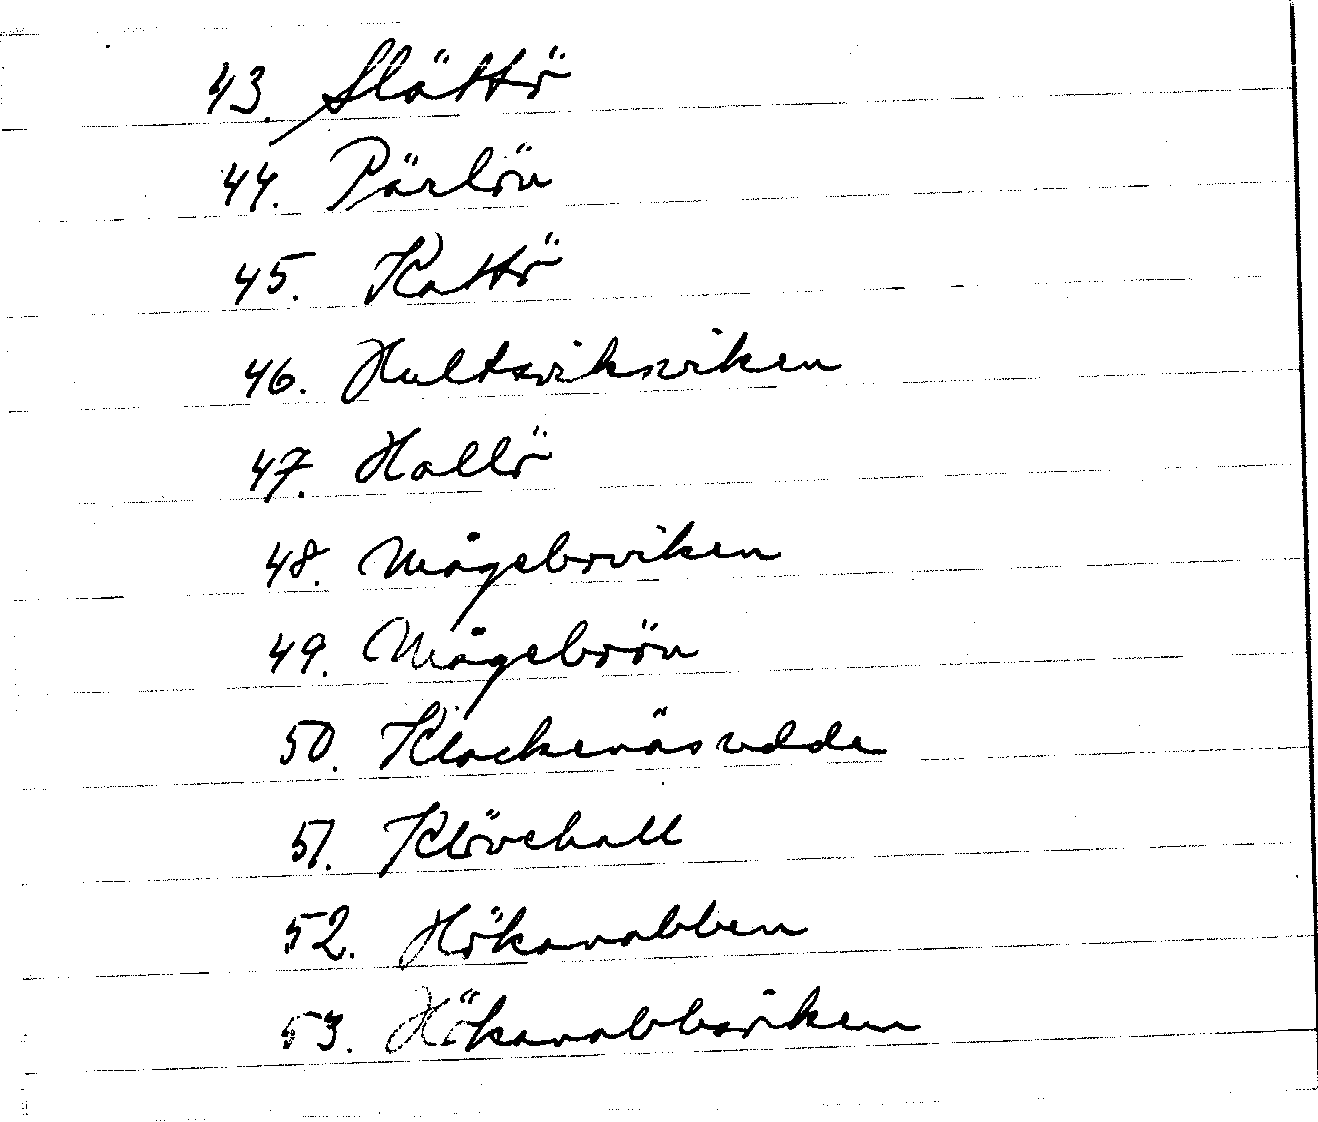 43. Slättö
44. Pärlön
45. Kattö
46. Hultsviksviken
47. Hallö
48. Mågebroviken
49. Mågebrön
50. Klockenäsudde
51. Klövehall
52. Hökanabben
53. Hökanabbsviken